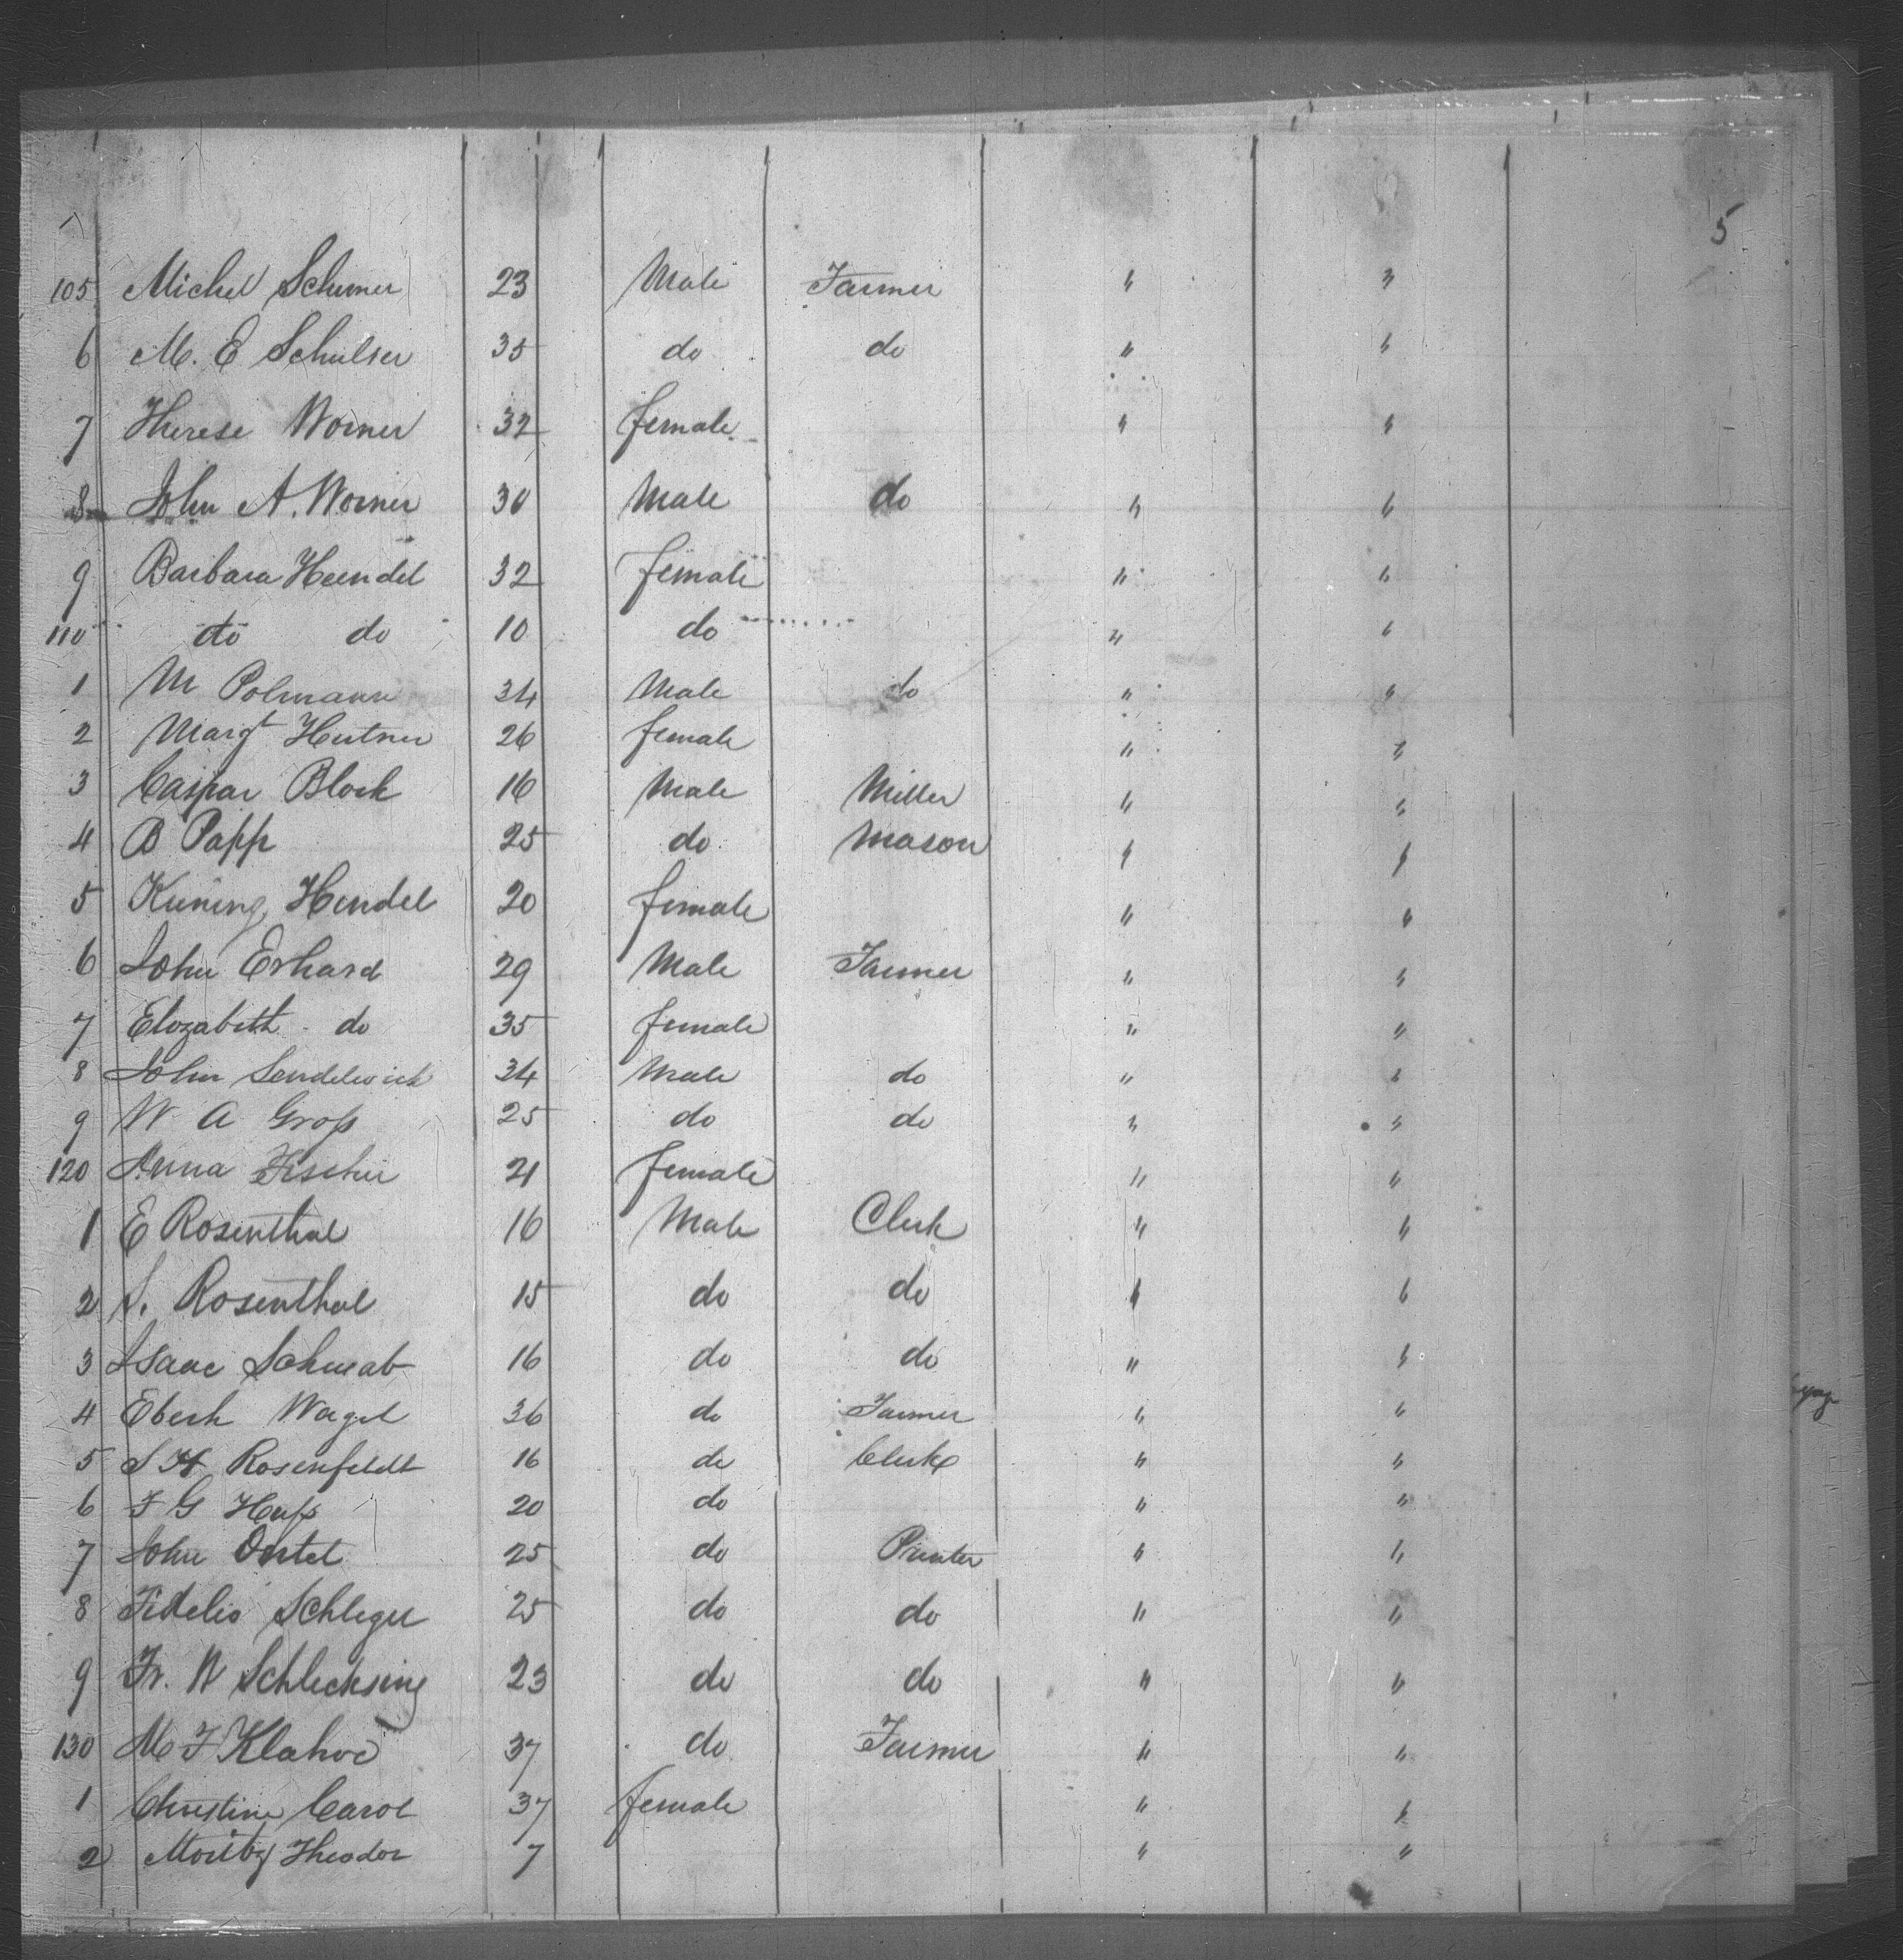 5
105 Michel Schirmer 23 Male Farmer " "
6 M. E Schulser 35 do do " "
7 Therese Worner 32 female " "
8 John A. Worner 30 Male do " "
9 Barbara Heendel 32 female " "
110 do do 10 do " "
1 M Polmann 34 Male do " "
2 Margt Hutner 26 female " "
3 Caspar Block 16 Male Miller " "
4 B Papp 25 do Mason " "
5 Kuning Hendel 20 female " "
6 John Erhard 29 Male Farmer " "
7 Elozabeth do 35 female " "
8 John 34 Male do " "
9 W A Gross 25 do do " "
120 Anna Fischer 21 female " "
1 E Rosenthal 16 Male Clerk " "
2 S. Rosenthal 15 do do " "
3 Isaac Schwab 16 do do " "
4 Eberh Wagel 36 do Farmer " "
5 S H Rosenfeldt 16 do Clerk " "
6 F G Hass 20 do " "
7 John Oertel 25 do Printer " "
8 Fidelio Schleger 25 do do " "
9 Fr. W Schlecksing 23 do do " "
130 M F Klahoe 37 do Farmer " "
1 Christine Carol 37 female " "
2 Moritz Theodor 7 " "